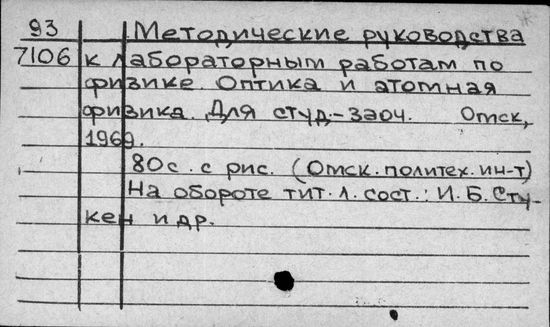 93 Методические руководства
7106 к лабораторным работам по
физике. Оптика и атомная
физика. Для студ.-заоч. Омск,
1969.
80с. с рис. (Омск. политех. ин-т)
На обороте тит. л. сост.: И.Б. Сту-
кен и др.